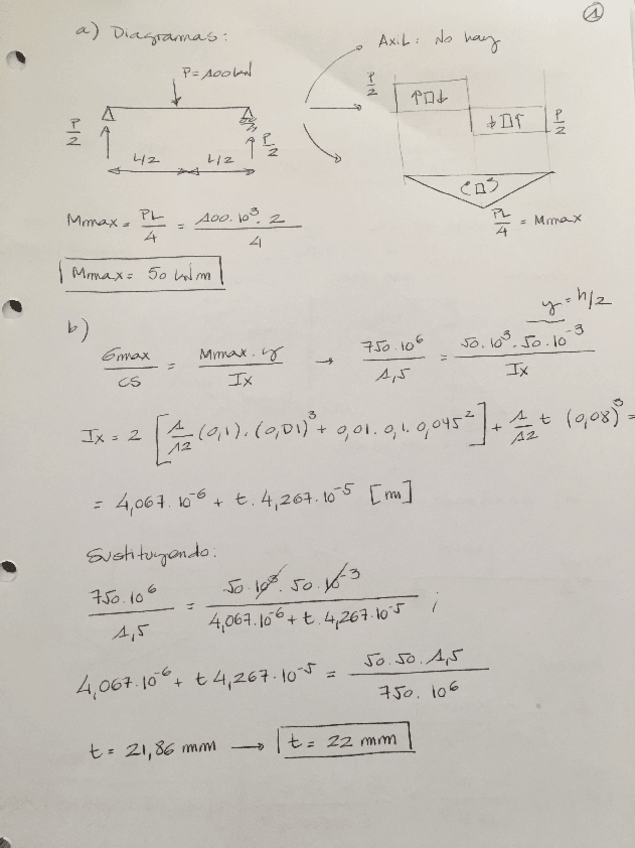 1
a) Diagramas:
Axil: No hay
P=100kN
P/2
↑□↓
↓□↑
P/2
P/2
P/2
L/2 L/2
PL/4 = Mmax
Mmax = PL/4 = 100.10³.2/4
Mmax = 50 kNm
y = h/2
b)
σmax/CS = Mmax.y/Ix → 750.10⁶/1,5 = 50.10³.50.10⁻³/Ix
Ix = 2 [1/12 (0,1).(0,01)³ + 0,01.0,1.0,045²] + 1/12 t (0,08)³ =
= 4,067.10⁻⁶ + t.4,267.10⁻⁵ [m]
Sustituyendo:
750.10⁶/1,5 = 50.10³.50.10⁻³/4,067.10⁻⁶ + t.4,267.10⁻⁵ ;
4,067.10⁻⁶ + t 4,267.10⁻⁵ = 50.50.1,5/750.10⁶
t = 21,86 mm → t = 22 mm